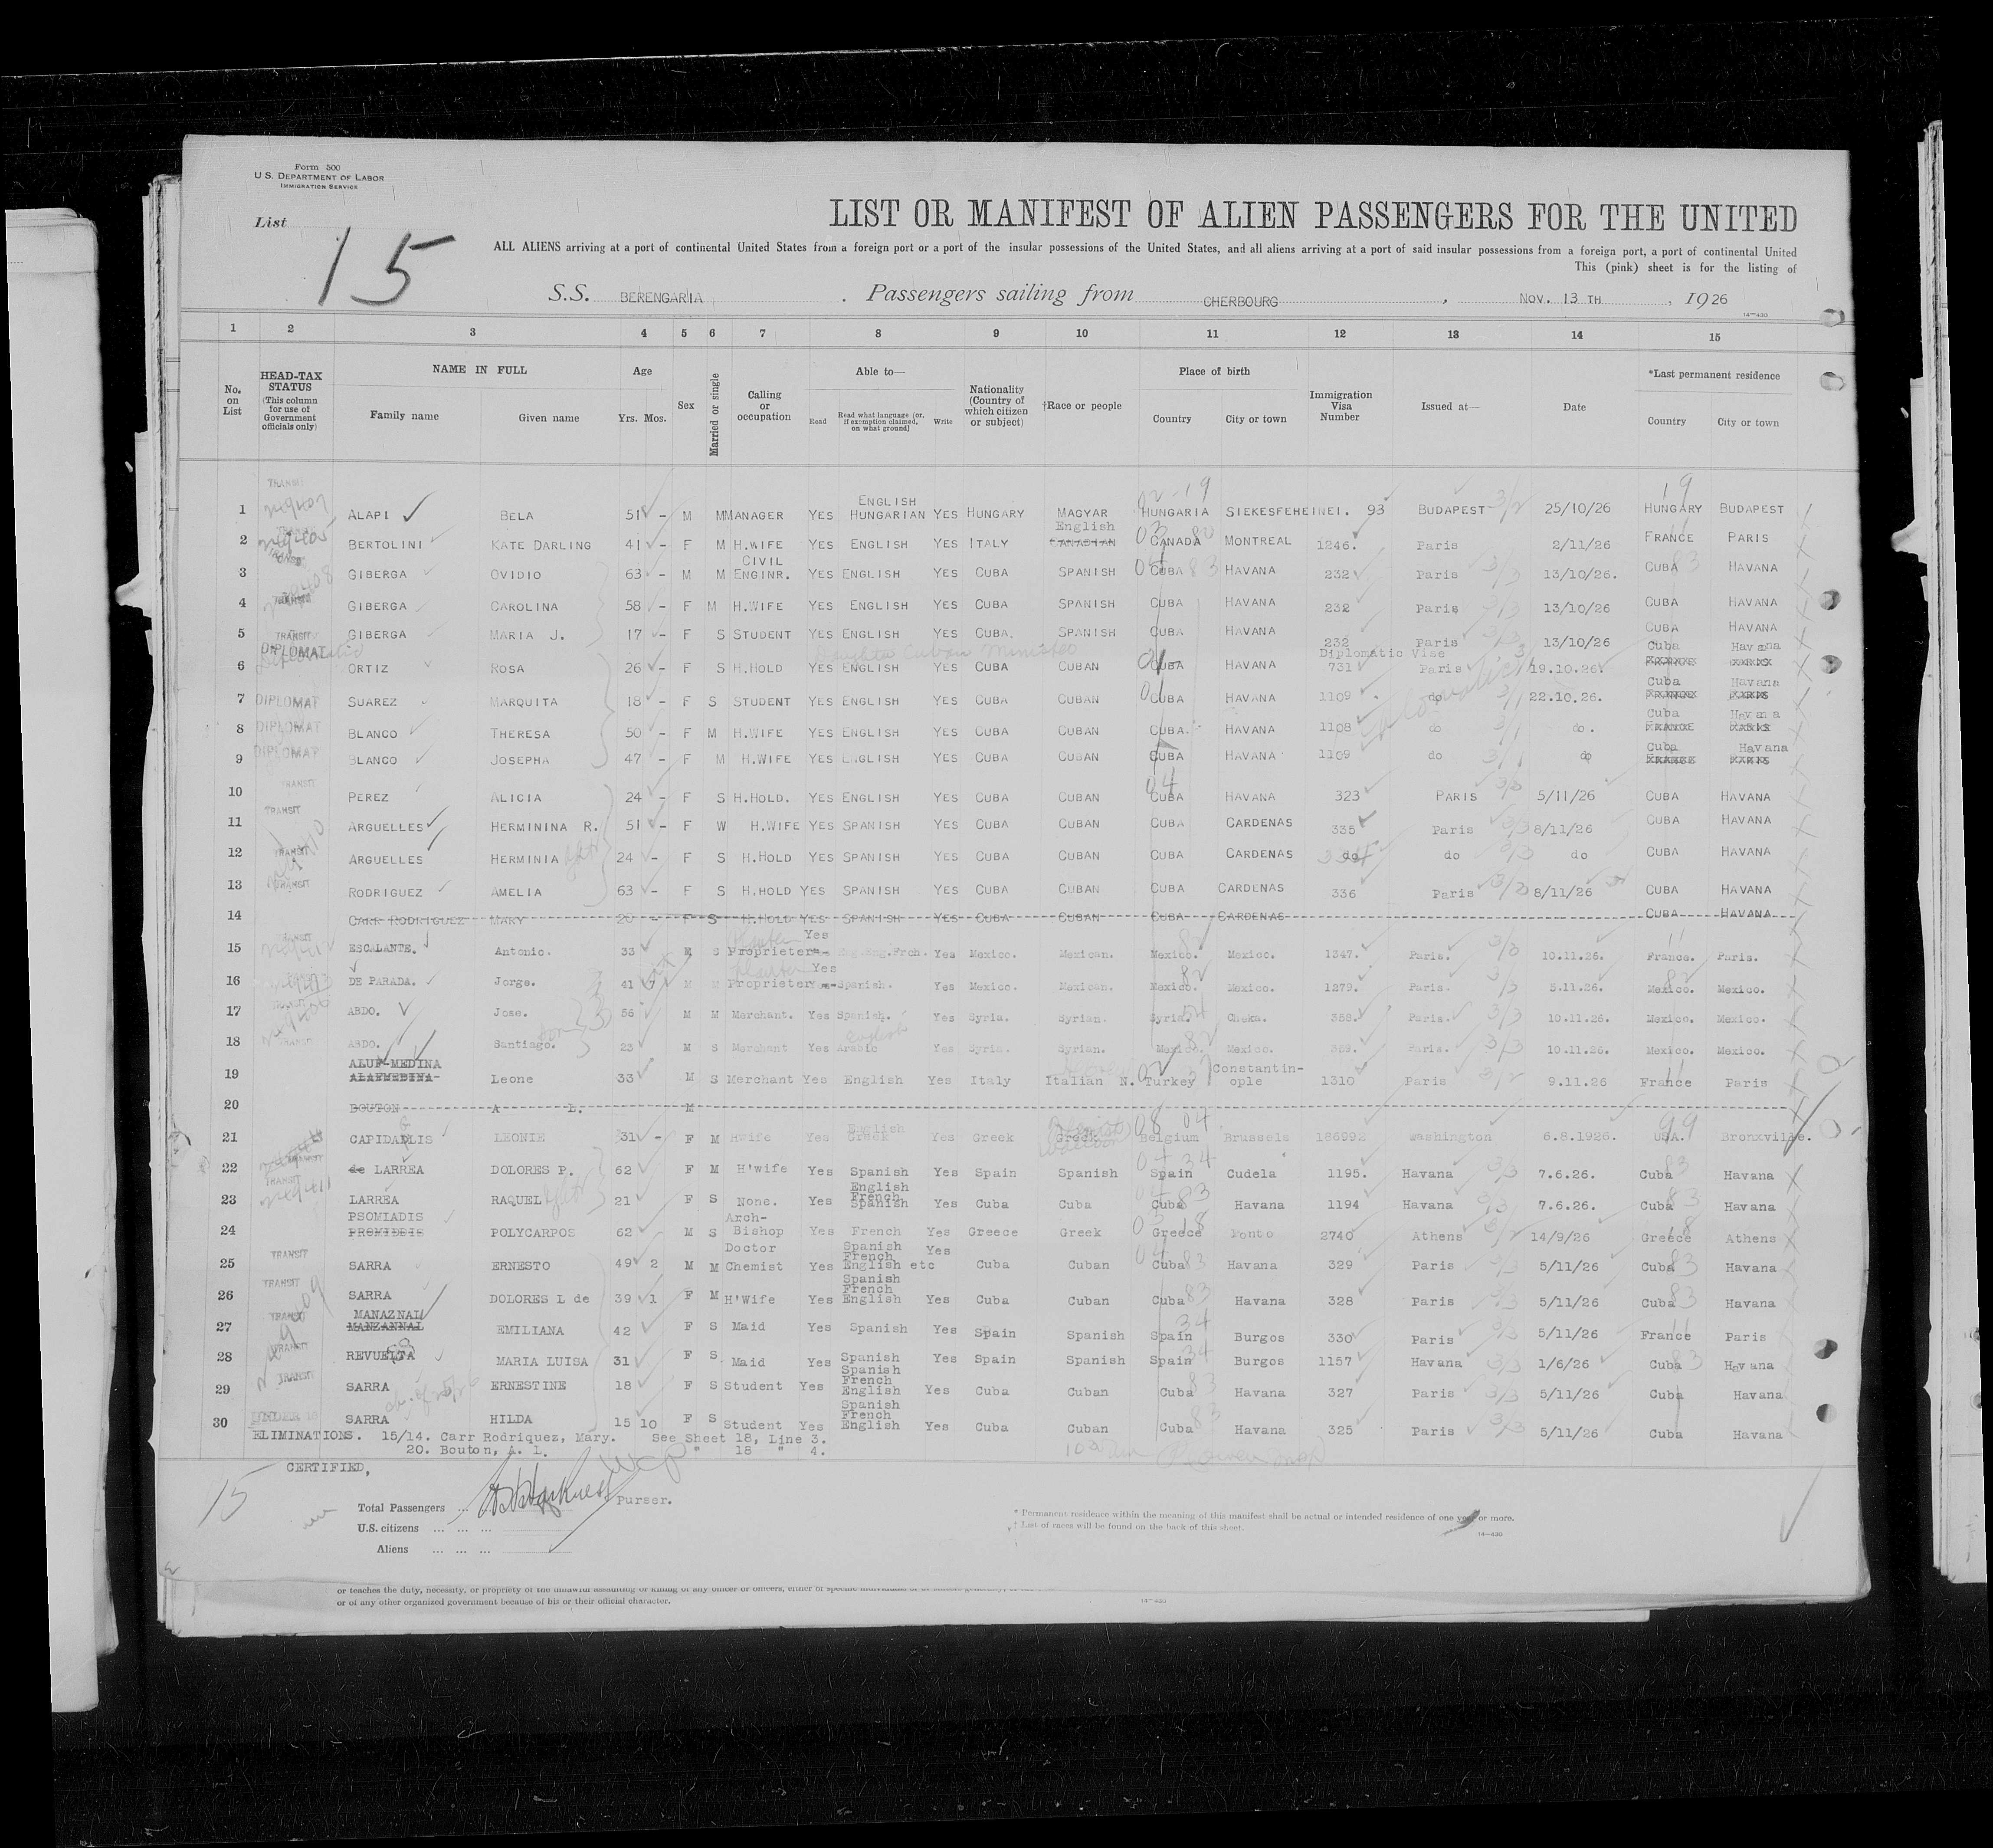 Form 500
U.S. DEPARTMENT OF LABOR
IMMIGRATION SERVICE
List
15
LIST OR MANIFEST OF ALIEN PASSENGERS FOR THE UNITED
ALL ALIENS arriving at a port of continental United States from a foreign port or a port of the insular possessions of the United States, and all aliens arriving at a port of said insular possessions from a foreign port, a port of continental United
This (pink) sheet is for the listing of
S.S. BERENGARIA . Passengers sailing from CHERBOURG , Nov. 13 TH , 1926
14—430
1 2 3 4 5 6 7 8 9 10 11 12 13 14 15
No. on List HEAD-TAX STATUS (This column for use of Government officials only) NAME IN FULL Family name Given name Age Yrs. Mos. Sex Married or single Calling or occupation Able to— Read Read what language (or, if exemption claimed, on what ground) Write Nationality (Country of which citizen or subject) †Race or people Place of birth Country City or town Immigration Visa Number Issued at— Date *Last permanent residence Country City or town
1 TRANSIT ALAPI BELA 51 - M M MANAGER YES ENGLISH HUNGARIAN YES HUNGARY MAGYAR HUNGARIA SIEKESFEHEINEI. 93 BUDAPEST 25/10/26 HUNGARY BUDAPEST
2 TRANSIT BERTOLINI KATE DARLING 41 - F M H.WIFE YES ENGLISH YES ITALY English CANADIAN CANADA MONTREAL 1246. Paris 2/11/26 FRANCE PARIS
3 GIBERGA OVIDIO 63 - M M CIVIL ENGINR. YES ENGLISH YES CUBA SPANISH CUBA HAVANA 232 Paris 13/10/26. CUBA HAVANA
4 TRANSIT GIBERGA CAROLINA 58 - F M H.WIFE YES ENGLISH YES CUBA SPANISH CUBA HAVANA 232 Paris 13/10/26 CUBA HAVANA
5 TRANSIT GIBERGA MARIA J. 17 - F S STUDENT YES ENGLISH YES CUBA. SPANISH CUBA HAVANA 232 Paris 13/10/26 CUBA HAVANA
6 DIPLOMAT ORTIZ ROSA 26 - F S H.HOLD YES ENGLISH YES CUBA CUBAN CUBA HAVANA Diplomatic Vise 731 Paris 19.10.26. Cuba Havana
7 DIPLOMAT SUAREZ MARQUITA 18 - F S STUDENT YES ENGLISH YES CUBA CUBAN CUBA HAVANA 1109 do 22.10.26. Cuba Havana PARIS
8 DIPLOMAT BLANCO THERESA 50 - F M H.WIFE YES ENGLISH YES CUBA CUBAN CUBA. HAVANA 1108 do do. Cuba Havana FRANCE PARIS
9 DIPLOMAT BLANCO JOSEPHA 47 - F M H.WIFE YES ENGLISH YES CUBA CUBAN CUBA HAVANA 1109 do do Cuba Havana FRANCE PARIS
10 TRANSIT PEREZ ALICIA 24 - F S H.HOLD. YES ENGLISH YES CUBA CUBAN CUBA HAVANA 323 PARIS 5/11/26 CUBA HAVANA
11 TRANSIT ARGUELLES HERMININA R. 51 - F W H.WIFE YES SPANISH YES CUBA CUBAN CUBA CARDENAS 335 Paris 8/11/26 CUBA HAVANA
12 TRANSIT ARGUELLES HERMINIA 24 - F S H.HOLD YES SPANISH YES CUBA CUBAN CUBA CARDENAS do 334 do do CUBA HAVANA
13 TRANSIT RODRIGUEZ AMELIA 63 - F S H.HOLD YES SPANISH YES CUBA CUBAN CUBA CARDENAS 336 Paris 8/11/26 CUBA HAVANA
14 CARR RODRIGUEZ MARY 20 - F S H.HOLD YES SPANISH YES CUBA CUBAN CUBA CARDENAS CUBA HAVANA
15 TRANSIT ESCALANTE. Antonio. 33 M S Planter Proprietor Yes Eng.Frch. Yes Mexico. Mexican. Mexico. Mexico. 1347. Paris. 10.11.26. France. Paris.
16 DE PARADA. Jorge. 41 7 M M Planter Proprietor Yes Spanish. Yes Mexico. Mexican. Mexico. Mexico. 1279. Paris. 5.11.26. Mexico. Mexico.
17 TRANSIT ABDO. Jose. 56 M M Merchant. Yes Spanish. Yes Syria. Syrian. Syria. Cheka. 358. Paris. 10.11.26. Mexico. Mexico.
18 TRANSIT ABDO. Santiago. 23 M S Merchant Yes English Arabic Yes Syria. Syrian. Mexico. Mexico. 359. Paris. 10.11.26. Mexico. Mexico.
19 ALUF-MEDINA ALAFMEDINA Leone 33 M S Merchant Yes English Yes Italy Italian N. Turkey Constantinople 1310 Paris 9.11.26 France Paris
20 BOUTON A L. M
21 CAPIDAGLIS LEONIE 31 - F M Hwife Yes English Greek Yes Greek Greek Belgium Brussels 186992 Washington 6.8.1926. USA. Bronxville.
22 TRANSIT de LARREA DOLORES P. 62 F M H'wife Yes Spanish Yes Spain Spanish Spain Cudela 1195. Havana 7.6.26. Cuba Havana
23 TRANSIT LARREA RAQUEL 21 F S None. Yes English French Spanish Yes Cuba Cuba Cuba Havana 1194 Havana 7.6.26. Cuba Havana
24 PSOMIADIS POLYCARPOS 62 - M S Arch-Bishop Yes French Yes Greece Greek Greece Ponto 2740 Athens 14/9/26 Greece Athens
25 TRANSIT SARRA ERNESTO 49 2 M M Doctor Chemist Yes Spanish French English etc Yes Cuba Cuban Cuba Havana 329 Paris 5/11/26 Cuba Havana
26 TRANSIT SARRA DOLORES L de 39 1 F M H'Wife Yes Spanish French English Yes Cuba Cuban Cuba Havana 328 Paris 5/11/26 Cuba Havana
27 TRANSIT MANAZNAL MANZANNAL EMILIANA 42 F S Maid Yes Spanish Yes Spain Spanish Spain Burgos 330 Paris 5/11/26 France Paris
28 TRANSIT REVUELTA MARIA LUISA 31 F S Maid Yes Spanish Yes Spain Spanish Spain Burgos 1157 Havana 1/6/26 Cuba Havana
29 TRANSIT SARRA ERNESTINE 18 F S Student Yes Spanish French English Yes Cuba Cuban Cuba Havana 327 Paris 5/11/26 Cuba Havana
30 UNDER 16 SARRA HILDA 15 10 F S Student Yes Spanish French English Yes Cuba Cuban Cuba Havana 325 Paris 5/11/26 Cuba Havana
ELIMINATIONS. 15/14. Carr Rodriquez, Mary. See Sheet 18, Line 3.
20. Bouton, A. L. " 18 " 4.
CERTIFIED,
15
Purser.
Total Passengers ...
U.S. citizens ... ... ...
Aliens ... ... ...
* Permanent residence within the meaning of this manifest shall be actual or intended residence of one year or more.
† List of races will be found on the back of this sheet.
14—430
or teaches the duty, necessity, or propriety of the unlawful assaulting or killing of any officer or officers, either of specific individuals or of
or of any other organized government because of his or their official character.
14—430